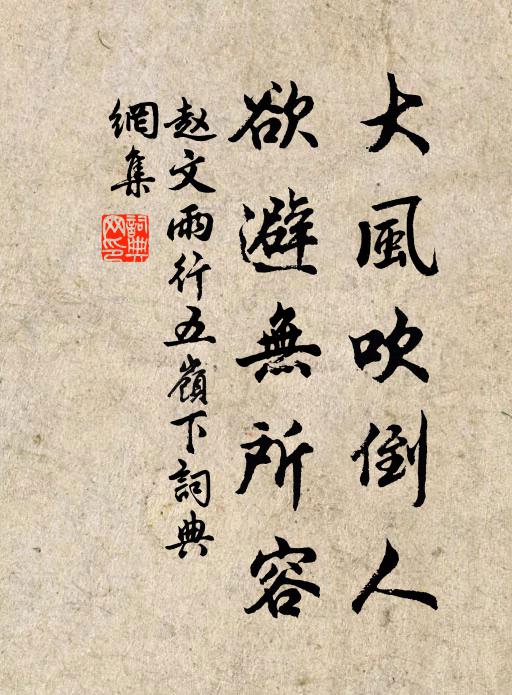 大風吹倒人
欲避無所容
赵文雨行五嶺下詞典
網集
詞典
网印